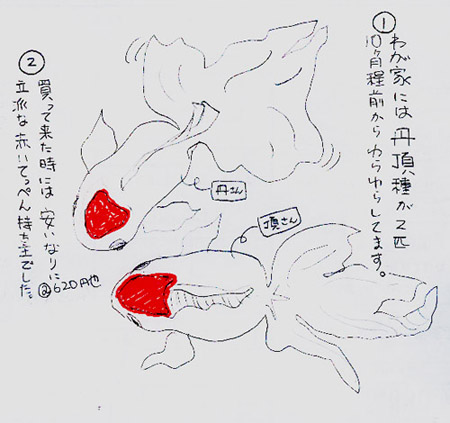 ①わが家には丹頂種が2匹
10ヶ月程前からゆらゆらしてます。
丹さん
頂さん
②買って来た時には安いなりに
@620円也
立派な赤いてっぺん持ち主でした。